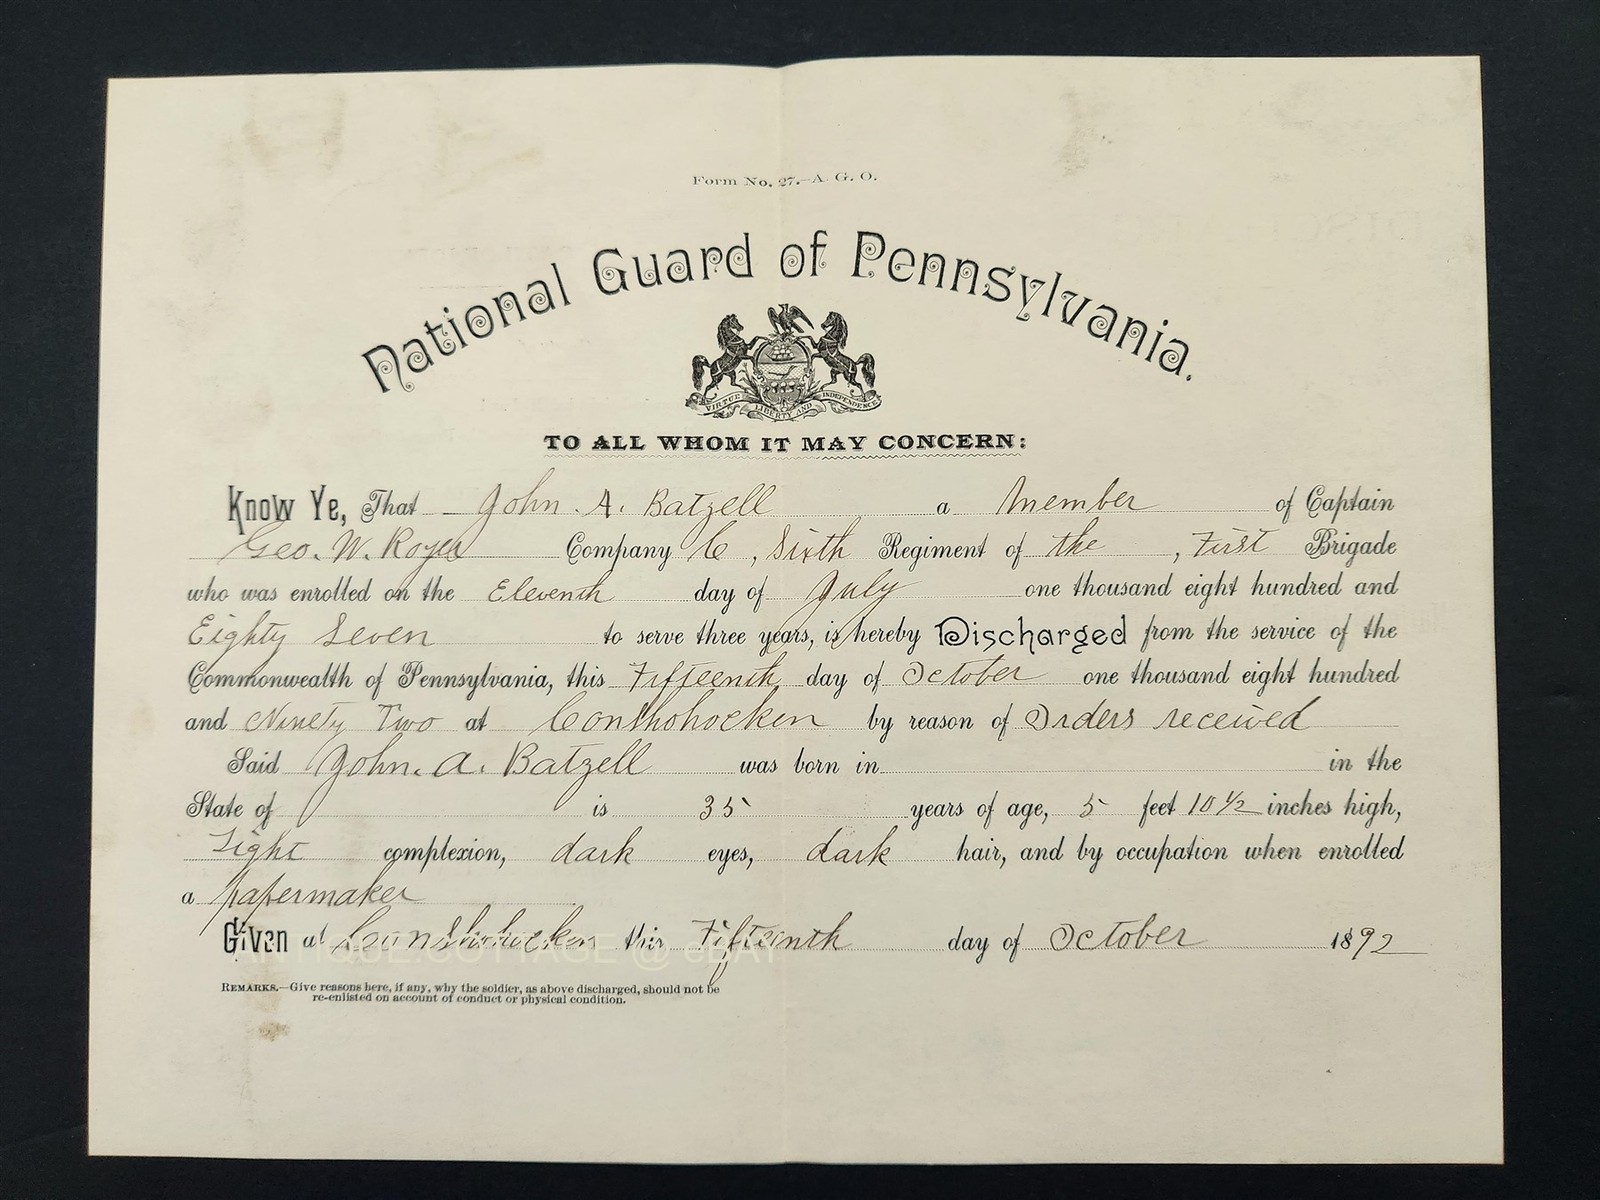 Form No. 27.—A. G. O.
National Guard of Pennsylvania.
VIRTUE LIBERTY AND INDEPENDENCE
TO ALL WHOM IT MAY CONCERN:
Know Ye, That John. A. Batzell a Member of Captain
Geo. W. Royer Company C, Sixth Regiment of the, First Brigade
who was enrolled on the Eleventh day of July one thousand eight hundred and
Eighty Seven to serve three years, is hereby Discharged from the service of the
Commonwealth of Pennsylvania, this Fifteenth day of October one thousand eight hundred
and Ninety Two at Conshohocken by reason of Orders received
Said John. A. Batzell was born in in the
State of is 35 years of age, 5 feet 10 1/2 inches high,
Light complexion, dark eyes, dark hair, and by occupation when enrolled
a papermaker
Given at Conshohocken this Fifteenth day of October 1892
ANTIQUE.COTTAGE @ eBAY
REMARKS.—Give reasons here, if any, why the soldier, as above discharged, should not be
re-enlisted on account of conduct or physical condition.